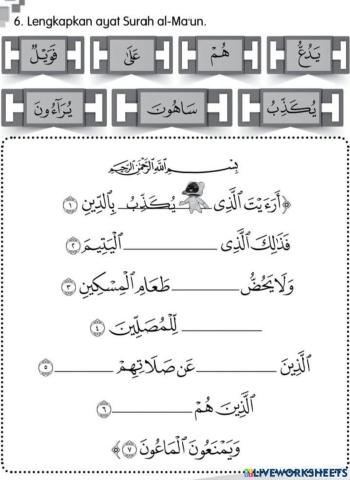 6. Lengkapkan ayat Surah al-Ma'un.
يَدُعُّ هُمْ عَلَىٰ فَوَيْلٌ
يُكَذِّبُ سَاهُونَ يُرَآءُونَ
بِسْمِ اللَّهِ الرَّحْمَٰنِ الرَّحِيمِ
﴿أَرَءَيْتَ الَّذِى يُكَذِّبُ بِالدِّينِ ١
فَذَٰلِكَ الَّذِى ________ الْيَتِيمَ ٢
وَلَا يَحُضُّ ________ طَعَامِ الْمِسْكِينِ ٣
________ لِّلْمُصَلِّينَ ٤
الَّذِينَ ________ عَن صَلَاتِهِمْ ________ ٥
الَّذِينَ هُمْ ________ ٦
وَيَمْنَعُونَ الْمَاعُونَ ٧﴾
LIVEWORKSHEETS